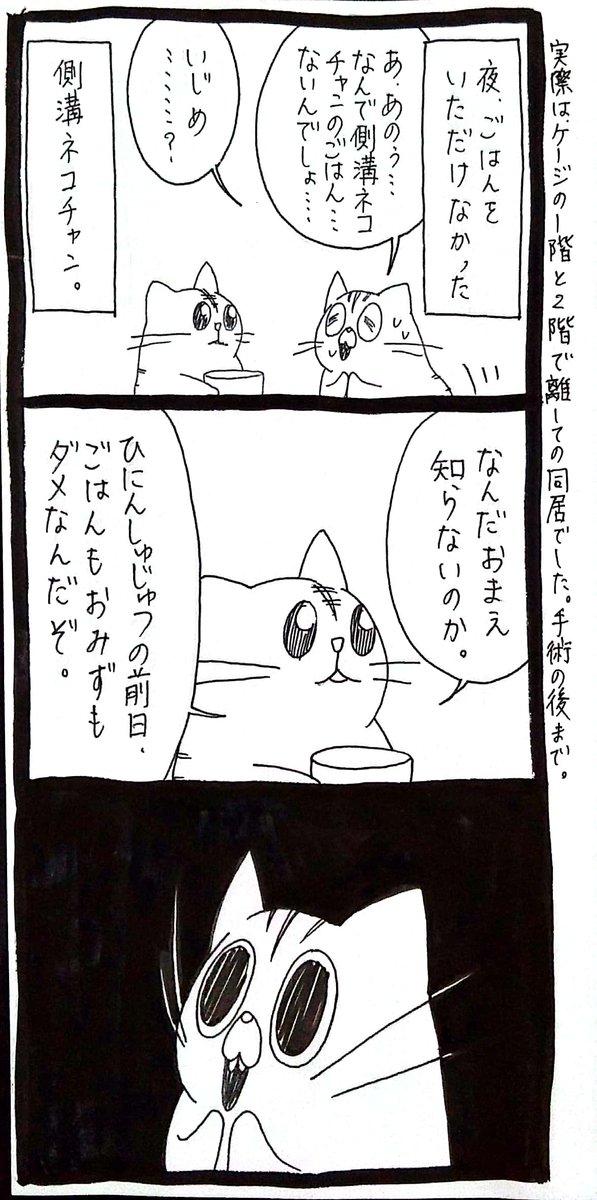 実際は、ケージの1階と2階で離しての同居でした。手術の後まで。
夜、ごはんを
いただけなかった
あ、あのぅ…
なんで側溝ネコ
チャンのごはん…
ないんでしょ……
いじめ
……………?
側溝ネコチャン。
なんだおまえ
知らないのか。
ひにんしゅじゅつの前日、
ごはんもおみずも
ダメなんだぞ。